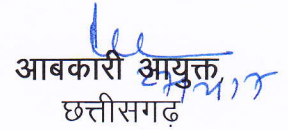 आबकारी आयुक्त,
छत्तीसगढ़